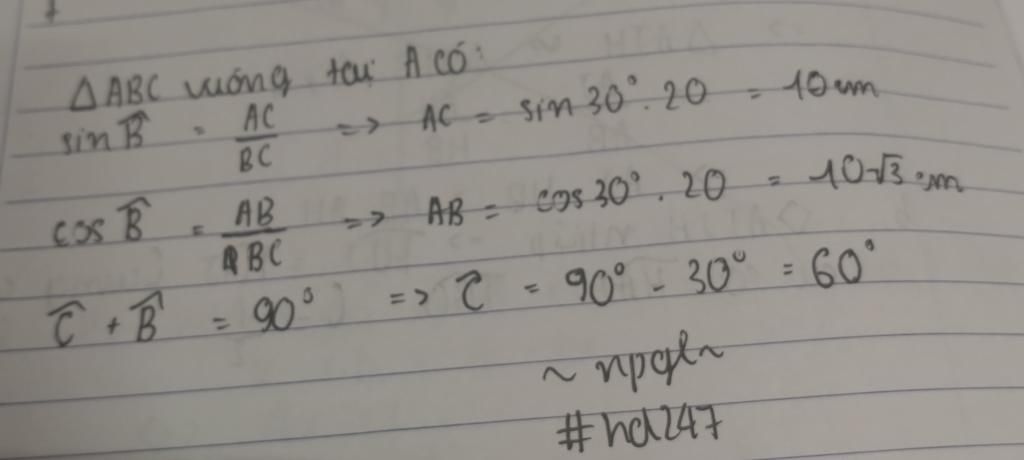 △ABC vuông tại A có:
sin B̂ = AC/BC => AC = sin 30°. 20 = 10 cm
cos B̂ = AB/BC => AB = cos 30°. 20 = 10√3 cm
Ĉ + B̂ = 90° => Ĉ = 90° - 30° = 60°
~ npgl ~
#hd247